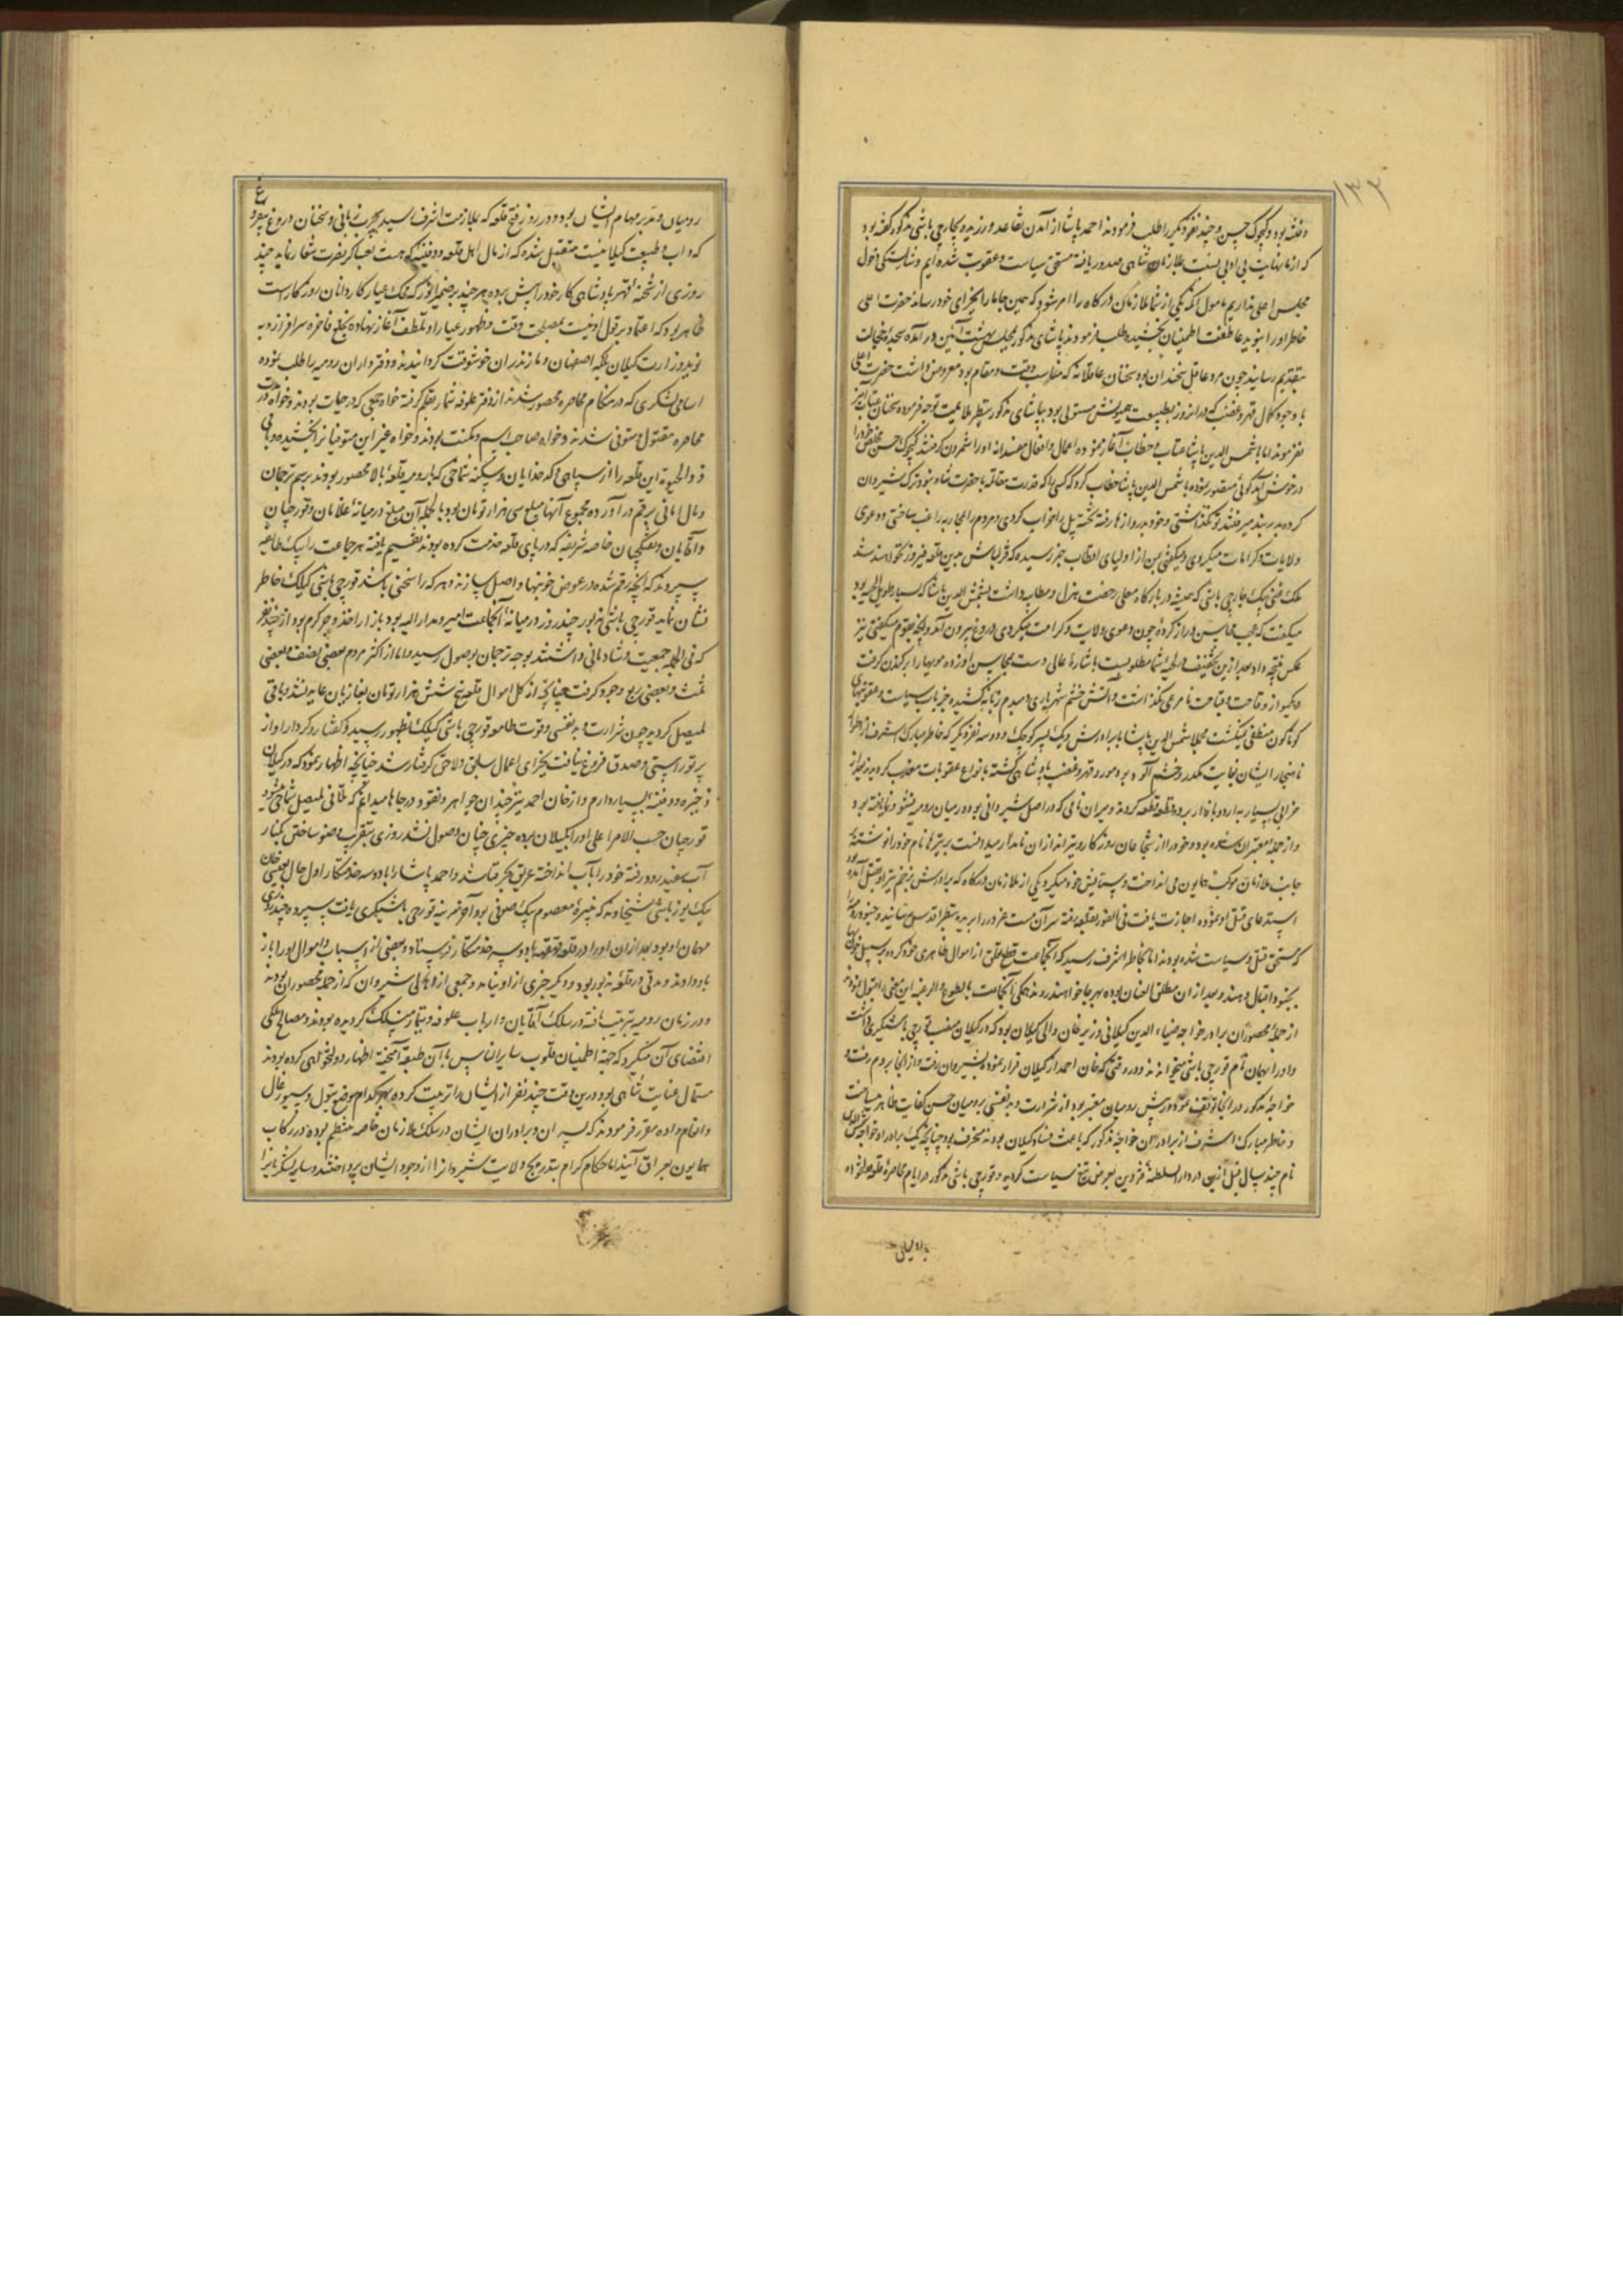 ۱۳۲
و فتنه بود و کوچک حسن و چند نفر دیگر را طلب فرمودند احمد پاشا از آمدن تقاعد ورزیده بجارچی باشی مذکور گفته بود
که از ما نهایت بی ادبی نسبت بملازمان شاهی صدور یافته مستحق سیاست و عقوبت شده ایم و شایستگی دخول
مجلس اعلی نداریم مأمول آنکه یکی از شما ملازمان درگاه را امر شود که همین جا ما را بجزای خود رساند حضرت اعلی
خاطر او را بنوید عاطفت اطمینان بخشیده طلب فرمودند پاشای مذکور بمجلس بهشت آئین در آمده سجده خجالت
بتقدیم رسانید چون مرد عاقل سخندان بود سخنان عاقلانه که مناسب وقت و مقام بود معروض داشت حضرت اعلی
با وجود کمال قهر و غضب که در آنروز بطبیعت همایونش مستولی بود بپاشای مذکور بنظر ملایمت توجه فرموده سخنان عتاب آمیز
نفرمودند اما با شمس الدین پاشا عتاب و خطاب آغاز نموده اعمال و افعال مفسدانه او را شمردن گرفتند کوچک حسن
در خوش آمد گوئی مقصور نموده با شمس الدین پاشا خطاب کرد که کسی را که قدرت مقابله با حضرت شاه نبود ترک شیروان
کرده بدربند میرفتند تو نگذاشتی و خود بدروازها رفته تخته پل را خواب کردی و مردم را بمحاربه راغب ساختی و دعوی
ولایات و کرامات میکردی و میگفتی بمن از اولیای اقطاب خبر رسیده که قزلباش بدین قلعه فیروز نخواهند شد
ملک بیک جارچی باشی که همیشه در بارگاه معلی رخصت هزل و مطایبه داشت بشمس الدین پاشا که بسیار طویل اللحیه بود
میگفت که عجب محاسن دراز کرده چون دعوی ولایت و کرامت میکردی دروغ بیرون آمد و آنچه بقوم میگفتی نیز
عکس نتیجه داد بعد ازین تخفیف در لحیه شما مطلوبست باشاره عالی دست بمحاسن او زده مویها را بر کندن گرفت
گوناگون منطفی نمیگشت مجملا شمس الدین پاشا با برادرش و یک پسر کوچک و دو سه نفر دیگر که خاطر مبارک اشرف از اطوار
ناهنجار ایشان بغایت مکدر و خشم آلود بود مورد قهر و غضب پادشاهی گشته بانواع عقوبات معذب گردیدند
خزابی بسیار به اردو بازار برده قطعه قطعه کردند و میران نامی که در اصل شیروانی بود در میان رومیه نشو و نما یافته بود
و از جمله معتبران شده بود و خود را از شجاعان روزگار و تیراندازان نامدار میدانست بر تیرها نام خود را نوشته
جانب ملازمان موکب همایون می انداخت و ستایش خود میکرد و یکی از ملازمان درگاه که برادرش بزخم تیر او بقتل آمده
استدعای قتل او نموده اجازت یافت فی الفور بقلعه رفته سر آن مست غرور را بریده بنظر اقدس رسانید
که مستحق قتل و سیاست شده بودند اما بخاطر اشرف رسید که آنجماعت قطع تعلق از اموال ظاهری خود کرده بر سبیل خونبها
بجنود اقبال دهند و بعد از آن مطلق العنان بوده بهر جا خواهند روند همگی آنجماعت بالطوع و الرغبه این معنی را قبول نمودند
از جمله محصوران برادر خواجه ضیاء الدین گیلانی وزیر خان والی گیلان بود که در گیلان منصب قورچی باشیگری داشت
و او را بهمان نام قورچی باشی میخواندند و در وقتی که خان احمد از گیلان فرار نموده بشیروان رفت و از آنجا بروم رفت
خواجه مذکور در آنجا توقف نموده پیش رومیان معتبر بود از شرارت و بد نفسی برومیان حسن کفایت ظاهر میساخت
و خاطر مبارک اشرف از برادران خواجه مذکور که باعث فساد گیلان بودند منحرف بود چنانچه یک برادر او خواجه
نام چند سال قبل ازین در دار السلطنه قزوین بعرض تیغ سیاست گردید و قورچی باشی مذکور در ایام محاصره قلعه
رومیان و مدبر مهام ایشان بود و در روز فتح قلعه که بملازمت اشرف رسید بچرب زبانی و سخنان دروغ
که داب طبیعت گیلانیست متقبل شده که از مال اهل قلعه و دفینه که هست بعساکر نصرت شعار نماید چند
روزی از شحنه قهر پادشاهی کار خود را پیش برده هر چند بر ضمیر انور که محک عیار کاردانان روزگار است
ظاهر بود که اعتماد بر قول او نیست بمصلحت وقت و ظهور عیار او تلطف آغاز نهاده بخلع فاخره سرافراز و به
نوید وزارت گیلان بلکه اصفهان و مازندران خوشوقت گردانیدند و دفترداران رومیه را طلب نموده
اسامی لشکری که در هنگام محاصره محصور شدند از دفتر علوفه شمار بقلم گرفته خواه جمعی که در حیات بودند و خواه در
محاصره مقتول و متوفی شدند و خواه صاحب اسم و مکنت بودند و خواه غیر این متوفیانرا بخشیده و باقی
ذوالحیوة این قلعه را از سپاهی که خدایان و سکنه شماخی که با رومیه قلعه بالا محصور بودند برسم ترجمان
و مال امانی بر قم در آورده مجموع آنها مبلغ سی هزار تومان بود بالجمله آن مبلغ در میانه غلامان و قورچیان
و آقایان و تفنگچیان خاصه شریفه که در پای قلعه خدمت کرده بودند تقسیم یافته هر جماعت را بیک طایفه
سپردند که آنچه رقم شده در عوض خونبها واصل سازند و هر که را سخنی باشد قورچی باشی گیلک خاطر
نشان نماید قورچی باشی مزبور چند روز در میانه آنجماعت امیر و مدار الیه بود بازار اخذ و جر گرم بود از چند نفر
که فی الجمله جمعیت و شادمانی داشتند بوجه ترجمان بوصول رسید و اما از اکثر مردم بعضی نصف و بعضی
ثلث و بعضی ربع وجوه گرفت چنانچه از کل اموال قلعه پنج شش هزار تومان بغازیان عاید نشد و باقی
لمیصل گردید چون شرارت و بد نفسی و قوت طامعه قورچی باشی گیلک بظهور رسید و گفتار و کردار او از
پرتو راستی و صدق فروغ نیافت بجزای اعمال سابق و لاحق گرفتار شد چنانچه اظهار نمود که در گیلان
ذخیره و دفینه بسیار دارم و از خان احمد نیز چندان جواهر و نقود در جاها میدانم که تلافی لمیصل شماخی شود
قورچیان حسب الامر اعلی او را بگیلان برده چیزی چنان وصول نشد روزی بتقریب وضو ساختن بکنار
آب سفید رود رفته خود را بآب انداخته غریق بحر فنا شد و احمد پاشا را با دو سه خدمتکار اول حال بعیسی خان
بیک یوزباشی شیخاوند که نبیره معصوم بیک صفوی بود آخر بمرتبه قورچی باشیگری یافت سپرده چند روزی
مهمان او بود بعد از آن او را در قلعه قهقهه با دو سه خدمتکار فرستاد و بعضی از اسباب و اموال او را باز
باو دادند و مدتی در قلعه مزبور بود و دیگر خبری از او نیامد و جمعی از اهالی شیروان که از جمله محصوران بودند
و در زمان رومیه تربیت یافته در سلک آقایان و ارباب علوفه و تیمار منسلک گردیده بودند و مصالح ملکی
اقتضای آن میکرد که جهة اطمینان قلوب سایر الناس با آن طبقه آمیخته اظهار دولتخواهی کرده بودند
مستمال عنایت شاهی بود درین وقت چند نفر از ایشان را تربیت کرده بهر کدام موضع تیول و سیورغال
و انعام داده مقرر فرمودند که پسران و برادران ایشان در سلک ملازمان خاصه منتظم بوده در رکاب
همایون بعراق آیند اما حکام کرام بتدریج ولایت شیروان را از وجود ایشان پرداختند و سایر لشکریانرا